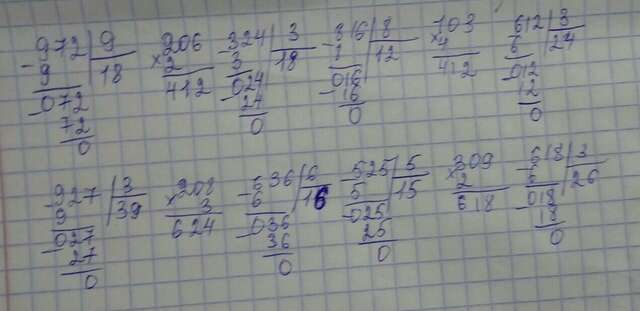 972 9 206 324 3 816 8 103 612 3
- 9 18 × 2 - 3 18 - 8 12 × 4 - 6 24
072 412 024 016 412 012
72 24 16 12
0 0 0 0
927 3 208 636 6 525 5 309 618 3
- 9 39 × 3 - 6 16 - 5 15 × 2 - 6 26
027 624 036 025 618 018
27 36 25 18
0 0 0 0